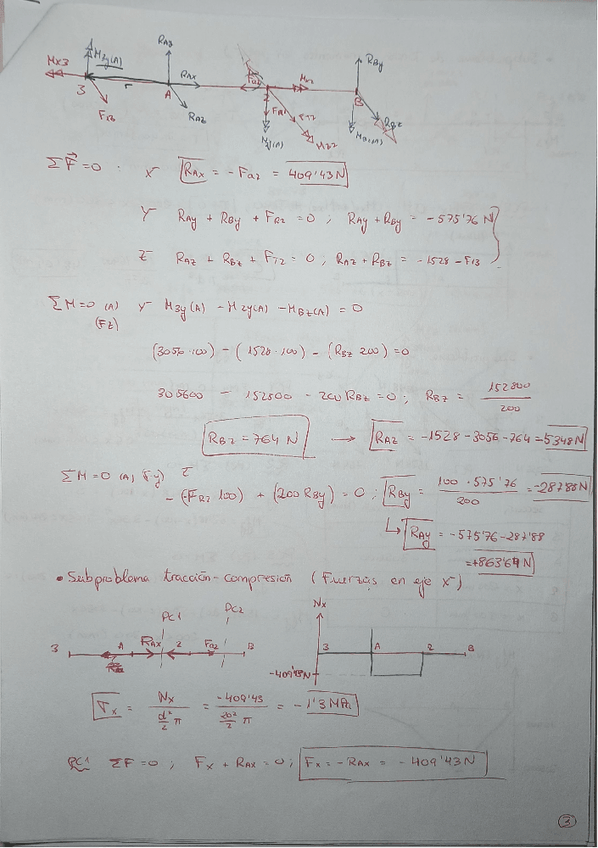 RAy RBy
Mx3 M3y(A) RAx Fa2 Mx2
3 A 2 B
Fr3 RAz FR2 FT2 RBz
M2y(A) Mz2 MBz(A)
ΣF⃗=0 . X RAx = -Fa2 = 409'43 N
Y RAy + RBy + FR2 = 0 ; RAy + RBy = -575'76 N
Z RAz + RBz + FT2 = 0 ; RAz + RBz = -1528 - F13
ΣM=0 (A) Y M3y(A) - M2y(A) - MBz(A) = 0
(Fz)
(3056·100) - (1528·100) - (RBz 200) = 0
305600 - 152800 - 200 RBz = 0 ; RBz = 152800 / 200
RBz = 764 N → RAz = -1528 - 3056 - 764 = 5348 N
ΣM=0 (A) (Fy) Z
- (-FR2 100) + (200 RBy) = 0 ; RBy = 100 · 575'76 / 200 = -287'88 N
↳ RAy = -575'76 - 287'88
= +863'64 N
• Subproblema tracción-compresión (Fuerzas en eje X)
PC1 PC2 Nx
3 A RAx 2 Fa2 B 3 A 2 B
-409'43N
σx = Nx / d²/2 π = -409'43 / 20²/2 π = -1'3 MPa
PC1 ΣF=0 ; Fx + RAx = 0 ; Fx = -RAx = -409'43 N
3